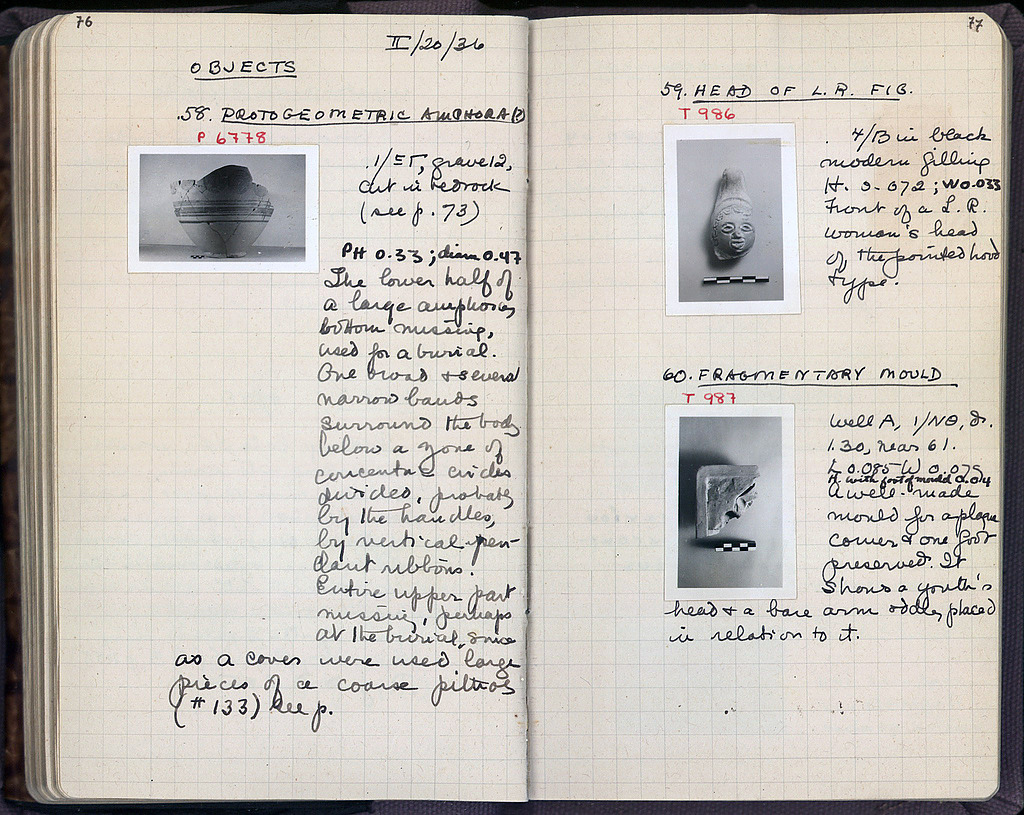 76
II/20/36
OBJECTS
58. PROTOGEOMETRIC AMPHORA (?)
P 6778
1/ΕΓ, grave 12,
cut in bedrock
(see p. 73)
PH 0.33; diam 0.47
The lower half of
a large amphora,
bottom missing,
used for a burial.
One broad & several
narrow bands
surround the body
below a zone of
concentric circles
divided, probably
by the handles,
by vertical pen-
dant ribbons.
Entire upper part
missing, perhaps
at the burial, since
as a cover were used large
pieces of a coarse pithos
(#133) see p.
77
59. HEAD OF L.R. FIG.
T 986
4/B in black
modern filling
H. 0.072; W 0.033
Front of a L.R.
woman's head
of the pointed hood
type.
60. FRAGMENTARY MOULD
T 987
Well A, 1/ΝΘ, d.
1.30, near 61.
L 0.085 W 0.075
H with foot of mould 0.04
A well-made
mould for a plaque
corner & one foot
preserved. It
shows a youth's
head & a bare arm oddly placed
in relation to it.